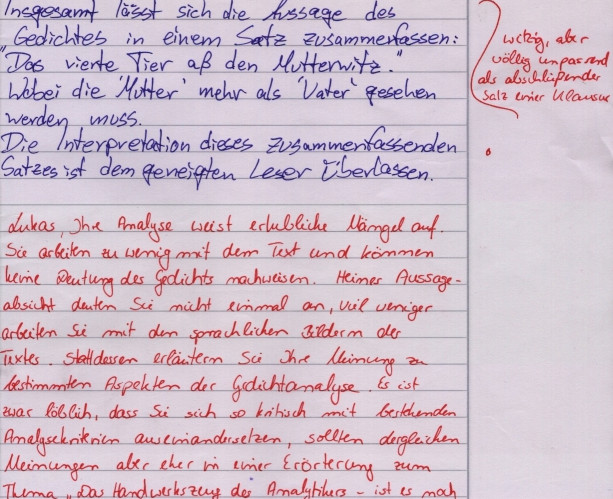 Insgesamt lässt sich die Aussage des
Gedichtes in einem Satz zusammenfassen:
"Das vierte Tier aß den Mutterwitz."
Wobei die 'Mutter' mehr als 'Vater' gesehen
werden muss.
Die Interpretation dieses zusammenfassenden
Satzes ist dem geneigten Leser Überlassen.
witzig, aber
völlig unpassend
als abschließender
Satz einer Klausur
Lukas, Ihre Analyse weist erhebliche Mängel auf.
Sie arbeiten zu wenig mit dem Text und können
keine Deutung des Gedichts nachweisen. Heines Aussage-
absicht deuten Sie nicht einmal an, viel weniger
arbeiten Sie mit den sprachlichen Bildern des
Textes. Stattdessen erläutern Sie Ihre Meinung zu
bestimmten Aspekten der Gedichtanalyse. Es ist
zwar löblich, dass Sie sich so kritisch mit bestehenden
Analysekriterien auseinandersetzen, sollten dergleichen
Meinungen aber eher in einer Erörterung zum
Thema „Das Handwerkszeug des Analytikers - ist es noch